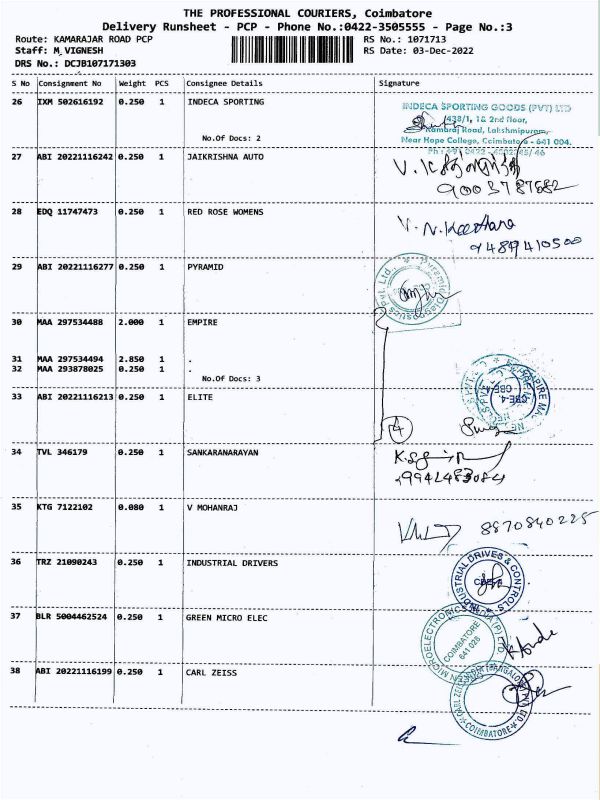 THE PROFESSIONAL COURIERS, Coimbatore
Delivery Runsheet - PCP - Phone No.:0422-3505555 - Page No.:3
Route: KAMARAJAR ROAD PCP RS No.: 1071713
Staff: M_VIGNESH RS Date: 03-Dec-2022
DRS No.: DCJB107171303
S No Consignment No Weight PCS Consignee Details Signature
26 IXM 502616192 0.250 1 INDECA SPORTING
INDECA SPORTING GOODS (PVT) LTD
438/1, 1& 2nd floor,
Kamaraj Road, Lakshmipuram,
No.Of Docs: 2 Near Hope College, Coimbatore - 641 004.
27 ABI 20221116242 0.250 1 JAIKRISHNA AUTO
9003787682
28 EDQ 11747473 0.250 1 RED ROSE WOMENS
V. N. Keerthana
9489410500
29 ABI 20221116277 0.250 1 PYRAMID
Pyramid Diagnostics Pvt. Ltd.,
30 MAA 297534488 2.000 1 EMPIRE
31 MAA 297534494 2.850 1 .
32 MAA 293878025 0.250 1 .
No.Of Docs: 3
CBE-4.
33 ABI 20221116213 0.250 1 ELITE
4
34 TVL 346179 0.250 1 SANKARANARAYAN
9942483084
35 KTG 7122102 0.080 1 V MOHANRAJ
8870840225
36 TRZ 21090243 0.250 1 INDUSTRIAL DRIVERS
INDUSTRIAL DRIVES & CONTROLS
37 BLR 5004462524 0.250 1 GREEN MICRO ELEC
COIMBATORE
641 028
38 ABI 20221116199 0.250 1 CARL ZEISS
COIMBATORE